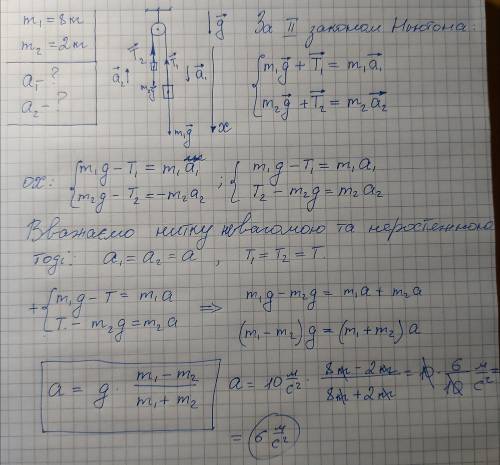 m₁ = 8м
m₂ = 2м
a₁ - ?
a₂ - ?
T⃗₂ T⃗₁ a⃗₂ a⃗₁ m₂g⃗ m₁g⃗ x g⃗
За II законом Ньютона:
{ m₁g⃗ + T⃗₁ = m₁a⃗₁
m₂g⃗ + T⃗₂ = m₂a⃗₂
ox: { m₁g - T₁ = m₁a₁ ; { m₁g - T₁ = m₁a₁
m₂g - T₂ = -m₂a₂ T₂ - m₂g = m₂a₂
Вважаємо нитку невагомою та неростяжною
тоді: a₁ = a₂ = a , T₁ = T₂ = T.
+ { m₁g - T = m₁a ⟹ m₁g - m₂g = m₁a + m₂a
T - m₂g = m₂a (m₁ - m₂) g = (m₁ + m₂) a
a = g · (m₁ - m₂)/(m₁ + m₂) a = 10 м/с² · (8м - 2м)/(8м + 2м) = 10 · 6/10 м/с² =
= 6 м/с²